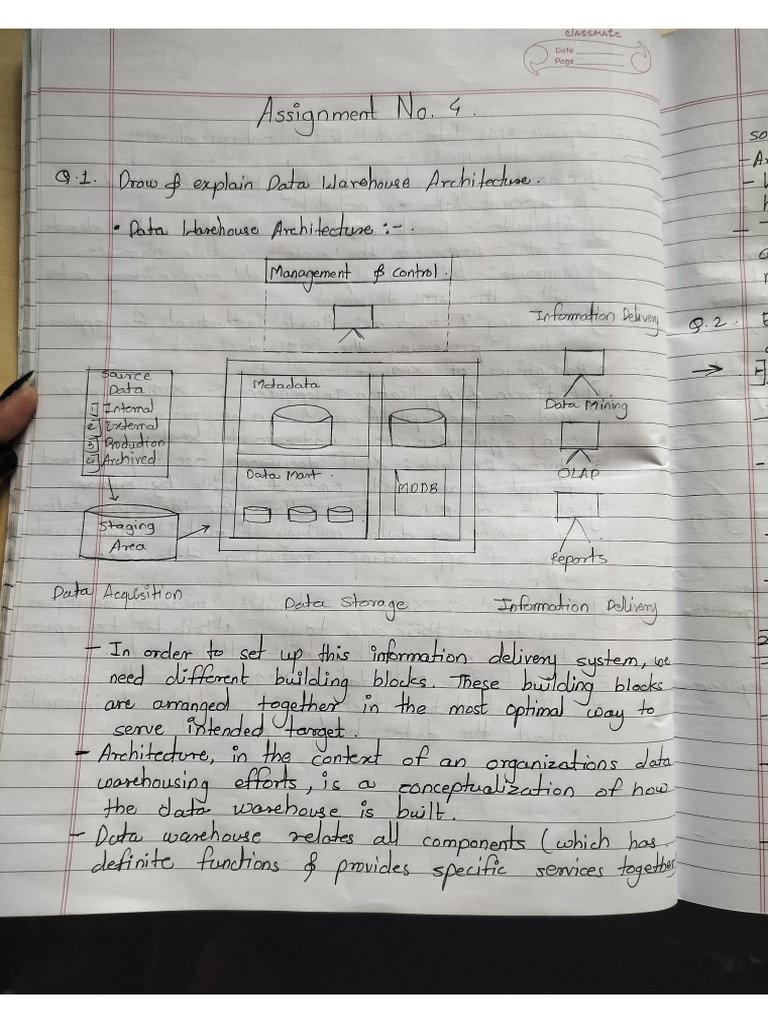 classmate
Date
Page
Assignment No. 4.
Q.1. Draw & explain Data Warehouse Architecture.
• Data Warehouse Architecture :-.
Management & control.
Information Delivery
Source
Data
1] Internal
2] External
3] Production
4] Archived
Staging
Area
Metadata.
Data Mart.
MDDB
Data Mining
OLAP
Reports
Data Acquisition
Data Storage
Information Delivery
- In order to set up this information delivery system, we
need different building blocks. These building blocks
are arranged together in the most optimal way to
serve intended target.
- Architecture, in the context of an organizations data
warehousing efforts, is a conceptualization of how
the data warehouse is built.
- Data warehouse relates all components (which has
definite functions & provides specific services together
so
Q.2.